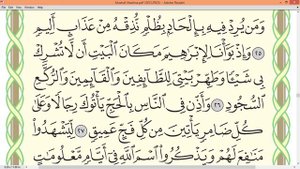 Mushaf Madina.pdf (SECURED) - Adobe Reader
وَمَن يُرِدْ فِيهِ بِإِلْحَادٍۭ بِظُلْمٍ نُّذِقْهُ مِنْ عَذَابٍ أَلِيمٍ
٢٥ وَإِذْ بَوَّأْنَا لِإِبْرَٰهِيمَ مَكَانَ ٱلْبَيْتِ أَن لَّا تُشْرِكْ
بِى شَيْـًٔا وَطَهِّرْ بَيْتِىَ لِلطَّآئِفِينَ وَٱلْقَآئِمِينَ وَٱلرُّكَّعِ
ٱلسُّجُودِ ٢٦ وَأَذِّن فِى ٱلنَّاسِ بِٱلْحَجِّ يَأْتُوكَ رِجَالًا وَعَلَىٰ
كُلِّ ضَامِرٍ يَأْتِينَ مِن كُلِّ فَجٍّ عَمِيقٍ ٢٧ لِّيَشْهَدُوا۟
مَنَٰفِعَ لَهُمْ وَيَذْكُرُوا۟ ٱسْمَ ٱللَّهِ فِىٓ أَيَّامٍ مَّعْلُومَٰتٍ